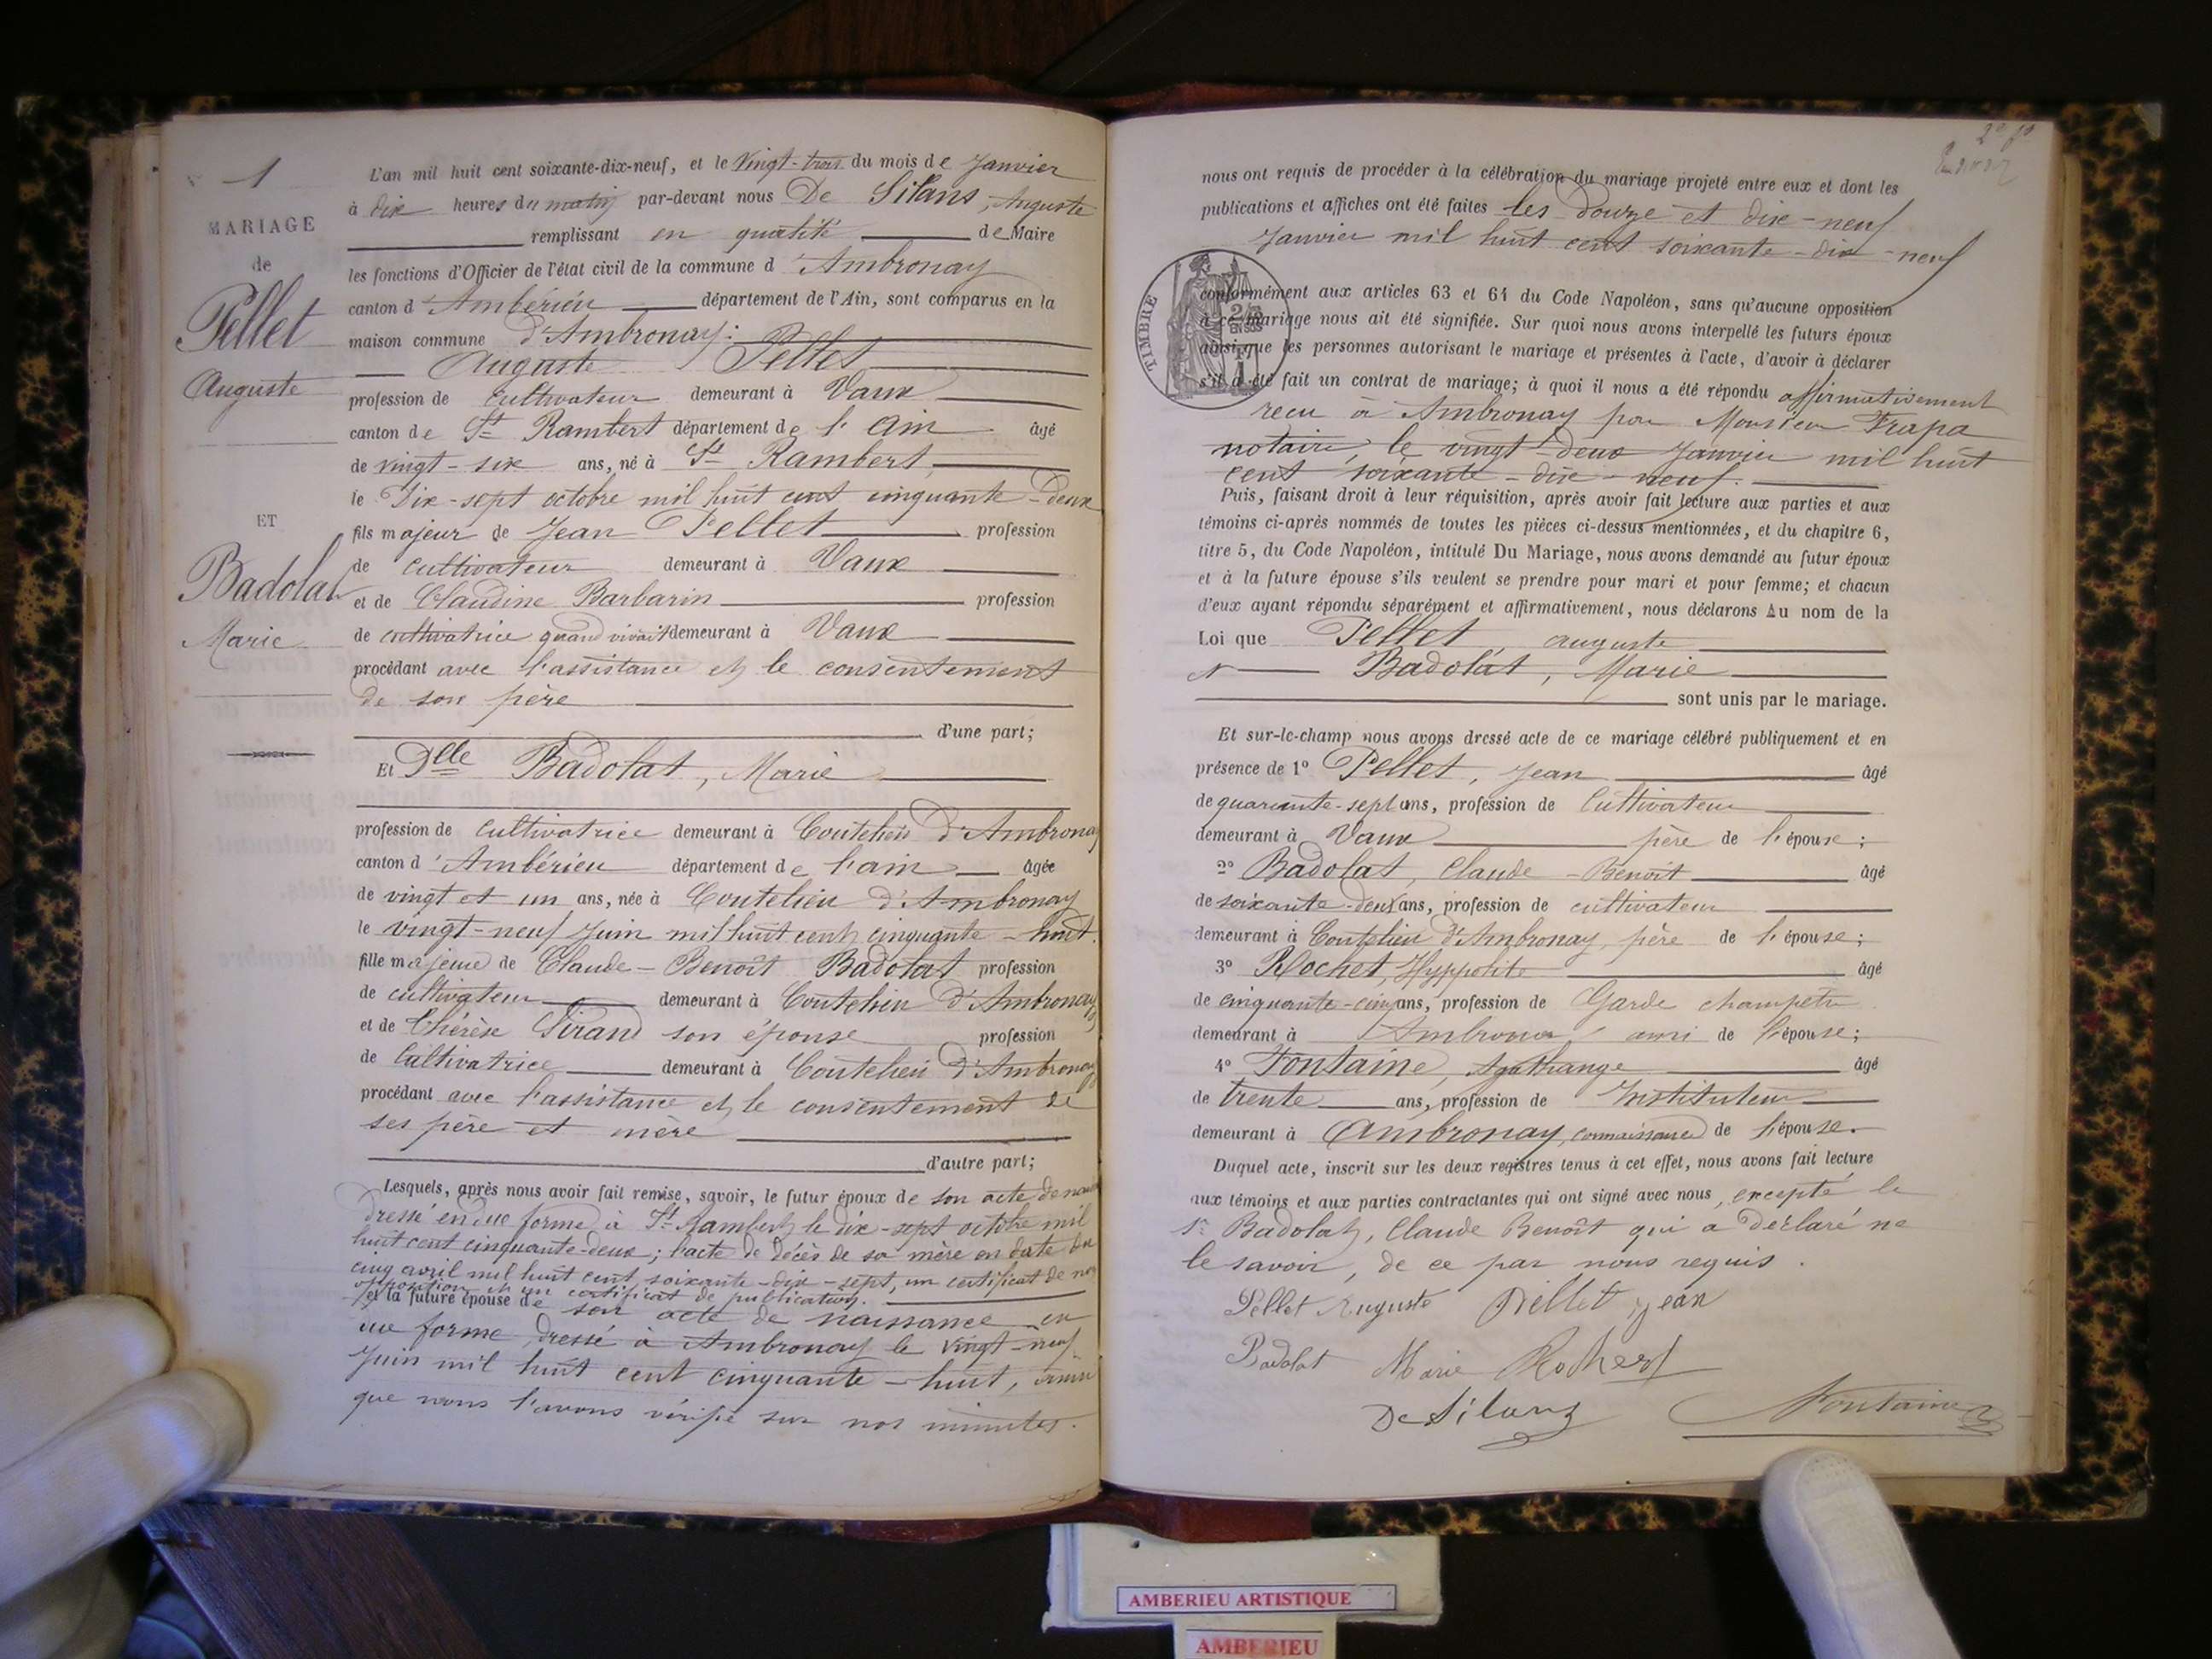 1
MARIAGE
de
Pellet
Auguste
ET
Badolat
Marie
L'an mil huit cent soixante-dix-neuf, et le Vingt-trois du mois de Janvier
à dix heures du matin par-devant nous De Silans, Auguste
remplissant en qualité de Maire
les fonctions d'Officier de l'état civil de la commune d'Ambronay
canton d'Ambérieu département de l'Ain, sont comparus en la
maison commune d'Ambronay:
Auguste Pellet
profession de cultivateur demeurant à Vaux
canton de St Rambert département de l'Ain âgé
de vingt-six ans, né à St Rambert,
le Dix-sept octobre mil huit cent cinquante-deux
fils majeur de Jean Pellet profession
de cultivateur demeurant à Vaux
et de Claudine Barbarin profession
de cultivatrice quand vivait demeurant à Vaux
procédant avec l'assistance et le consentement
de son père
d'une part;
Et Dlle Badolat, Marie
profession de cultivatrice demeurant à Coutelieu d'Ambronay
canton d'Ambérieu département de l'ain âgée
de vingt et un ans, née à Coutelieu d'Ambronay
le vingt-neuf Juin mil huit cent cinquante-huit.
fille majeure de Claude-Benoît Badolat profession
de cultivateur demeurant à Coutelieu d'Ambronay
et de Thérèse Sirand son épouse profession
de Cultivatrice demeurant à Coutelieu d'Ambronay
procédant avec l'assistance et le consentement de
ses père et mère
d'autre part;
Lesquels, après nous avoir fait remise, savoir, le futur époux de son acte de
dressé en due forme à St Rambert le dix-sept octobre mil
huit cent cinquante-deux; l'acte de décès de sa mère en date du
cinq avril mil huit cent soixante-dix-sept, un certificat de non
opposition et un certificat de publication.
et la future épouse de son acte de naissance en
due forme, dressé à Ambronay le vingt-neuf
Juin mil huit cent cinquante-huit, ainsi
que nous l'avons vérifié sur nos minutes.
nous ont requis de procéder à la célébration du mariage projeté entre eux et dont les
publications et affiches ont été faites les Douze et dix-neuf
Janvier mil huit cent soixante-dix-neuf
TIMBRE
conformément aux articles 63 et 64 du Code Napoléon, sans qu'aucune opposition
à ce mariage nous ait été signifiée. Sur quoi nous avons interpellé les futurs époux
ainsi que les personnes autorisant le mariage et présentes à l'acte, d'avoir à déclarer
s'il a été fait un contrat de mariage; à quoi il nous a été répondu affirmativement
reçu à Ambronay par Monsieur Frapa
notaire, le vingt-deux Janvier mil huit
cent soixante-dix-neuf.
Puis, faisant droit à leur réquisition, après avoir fait lecture aux parties et aux
témoins ci-après nommés de toutes les pièces ci-dessus mentionnées, et du chapitre 6,
titre 5, du Code Napoléon, intitulé Du Mariage, nous avons demandé au futur époux
et à la future épouse s'ils veulent se prendre pour mari et pour femme; et chacun
d'eux ayant répondu séparément et affirmativement, nous déclarons Au nom de la
Loi que Pellet auguste
et Badolat, Marie
sont unis par le mariage.
Et sur-le-champ nous avons dressé acte de ce mariage célébré publiquement et en
présence de 1º Pellet, Jean âgé
de quarante-sept ans, profession de Cultivateur
demeurant à Vaux père de l'épouse;
2º Badolat, Claude-Benoît âgé
de soixante-deux ans, profession de cultivateur
demeurant à Coutelieu d'Ambronay, père de l'épouse;
3º Rochet, Hyppolite âgé
de cinquante-cinq ans, profession de Garde champêtre
demeurant à Ambronay ami de l'épouse;
4º Fontaine, Agathange âgé
de trente ans, profession de Instituteur
demeurant à Ambronay, connaissance de l'épouse.
Duquel acte, inscrit sur les deux registres tenus à cet effet, nous avons fait lecture
aux témoins et aux parties contractantes qui ont signé avec nous, excepté le
Sr Badolat, Claude Benoît qui a déclaré ne
le savoir, de ce par nous requis.
Pellet Auguste Pellet Jean
Badolat Marie Rochet
De Silans Fontaine
AMBERIEU ARTISTIQUE
AMBERIEU